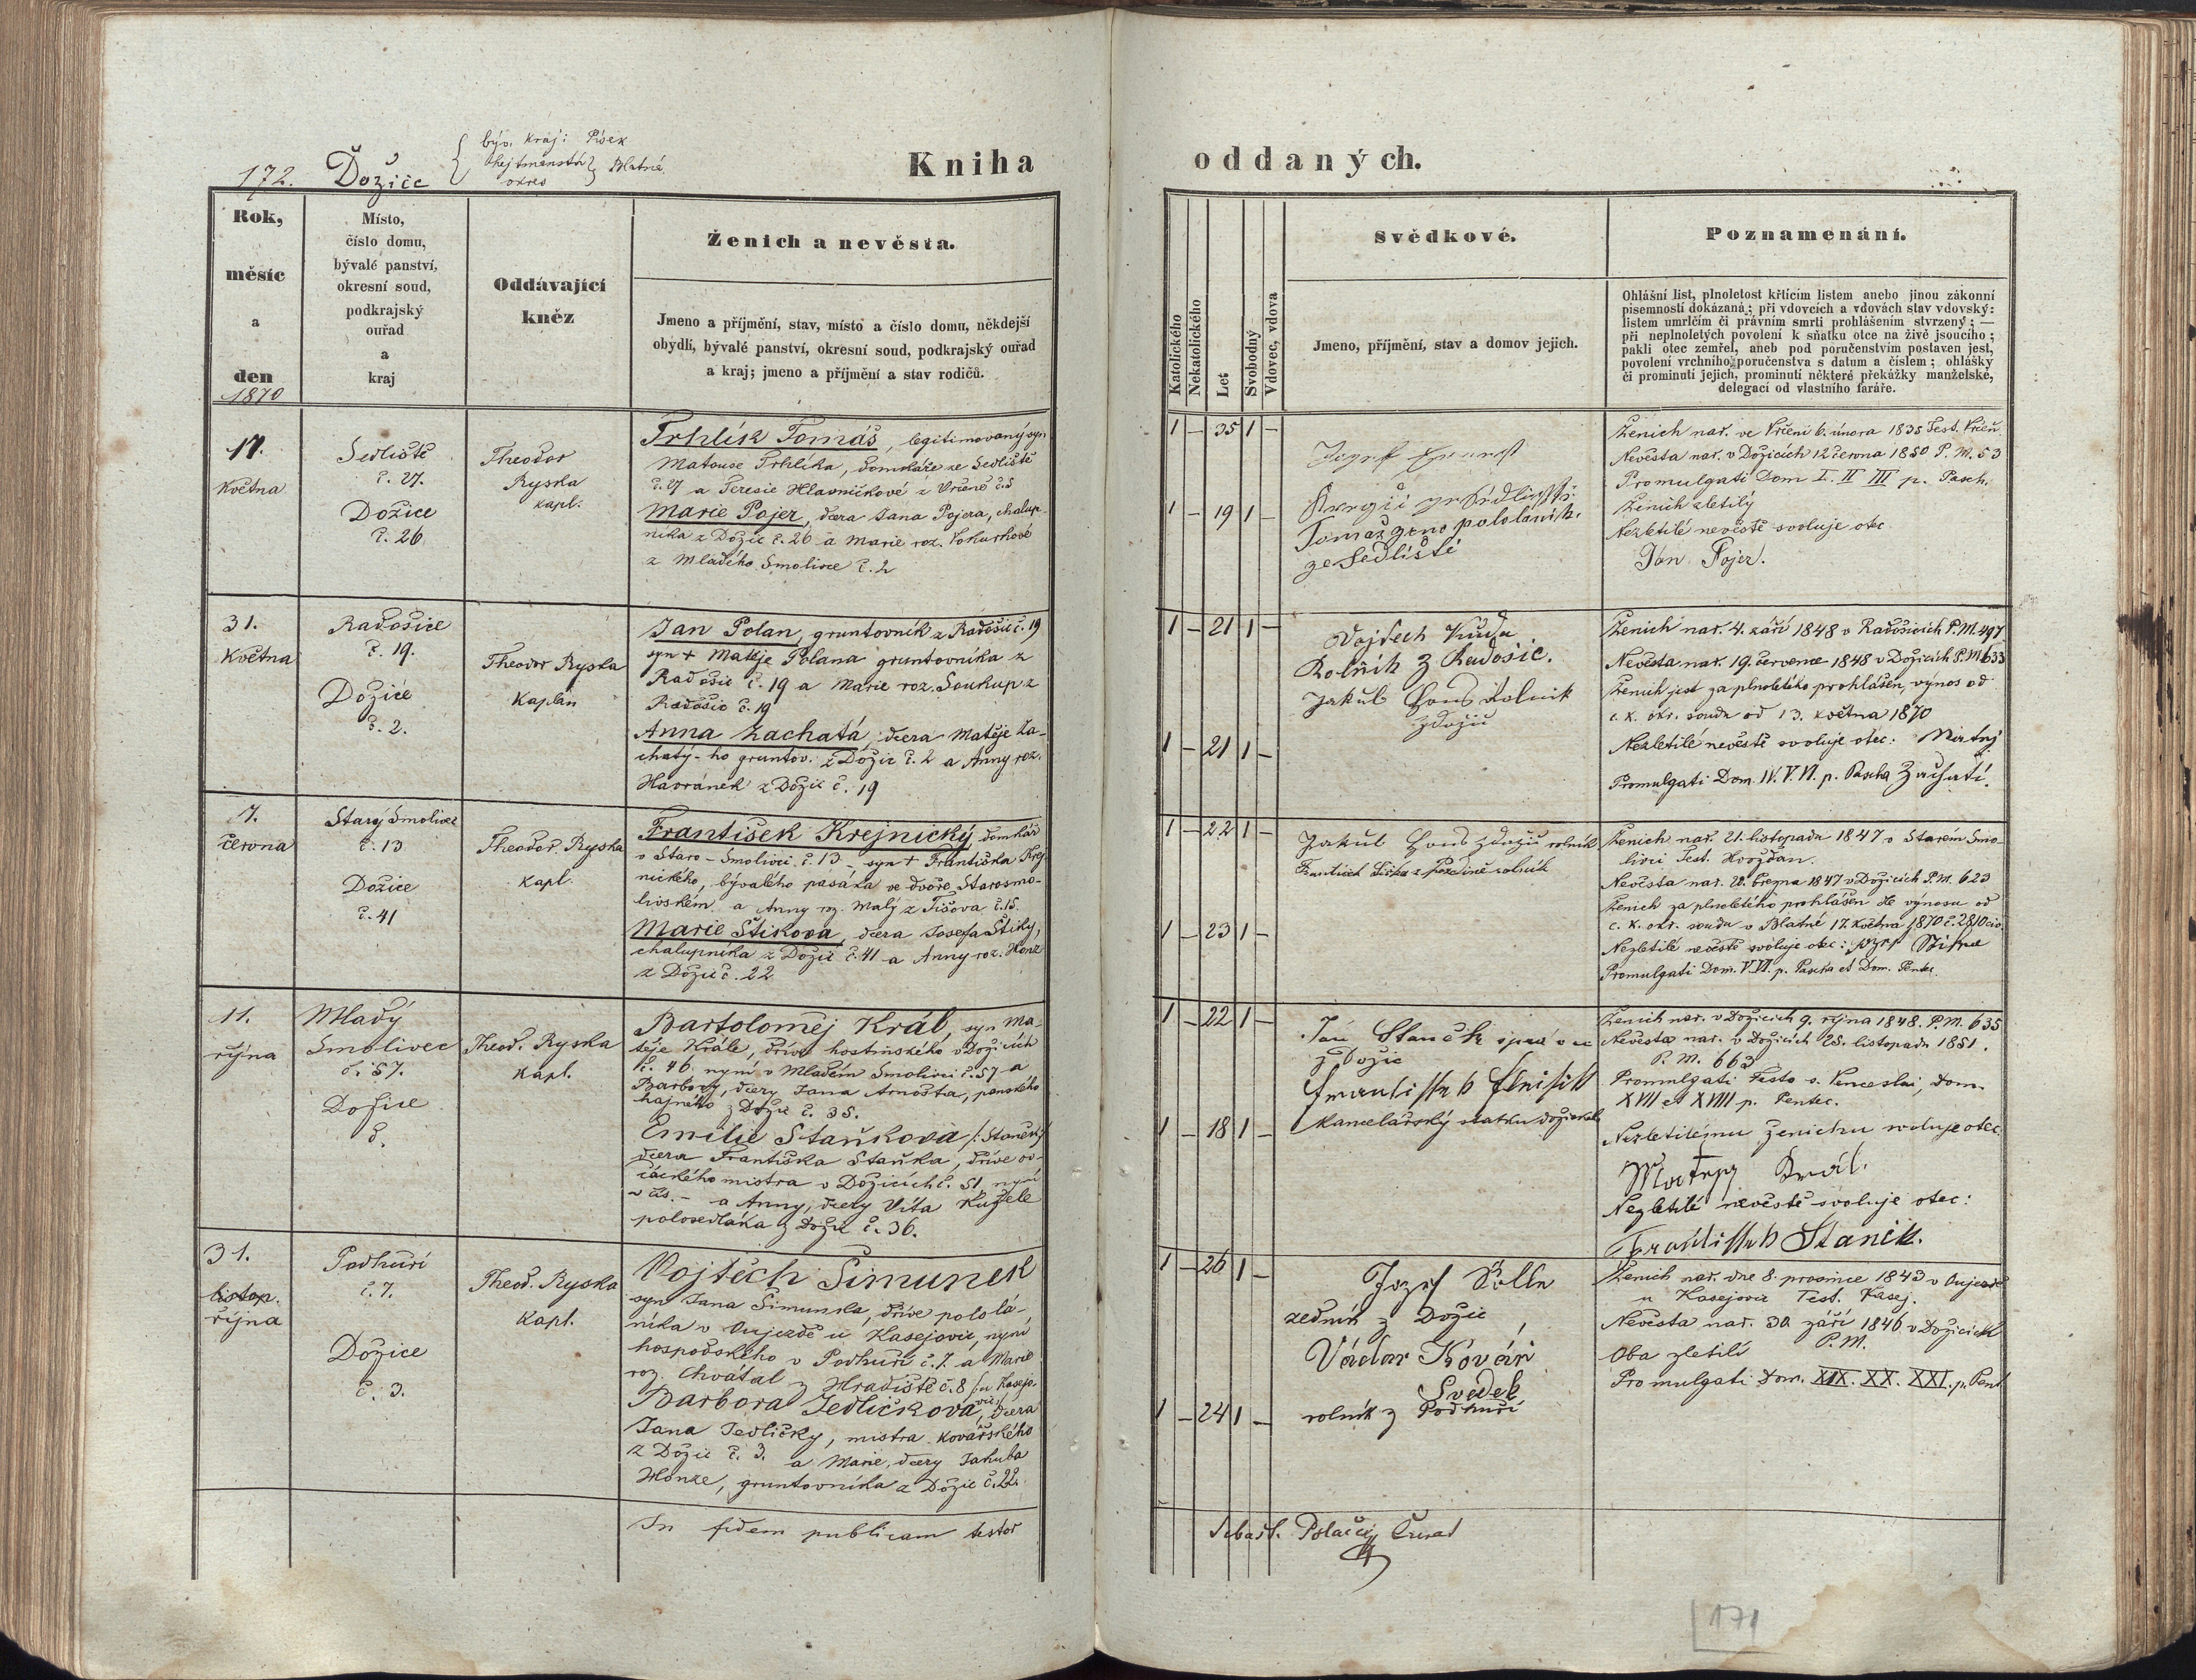 172. Dožice
býv. kraj: Písek
hejtmanství
okres
Blatná.
Kniha
oddaných.
Rok,
měsíc
a
den
1870
Místo,
číslo domu,
bývalé panství,
okresní soud,
podkrajský
ouřad
a
kraj
Oddávající
kněz
Ženich a nevěsta.
Jmeno a příjmění, stav, místo a číslo domu, někdejší
obydlí, bývalé panství, okresní soud, podkrajský ouřad
a kraj; jmeno a příjmění a stav rodičů.
Katolického
Nekatolického
Let
Svobodný
Vdovec, vdova
Svědkové.
Jmeno, příjmění, stav a domov jejich.
Poznamenání.
Ohlášní list, plnoletost křtícím listem anebo jinou zákonní
písemností dokázaná; při vdovcích a vdovách stav vdovský:
listem umrlčím či právním smrti prohlášením stvrzený; —
při neplnoletých povolení k sňatku otce na živě jsoucího;
pakli otec zemřel, aneb pod poručenstvím postaven jest,
povolení vrchního poručenstva s datum a číslem; ohlášky
či prominutí jejich, prominutí některé překážky manželské,
delegací od vlastního faráře.
17.
Května
Sedliště
č. 27.
Dožice
č. 26
Theodor
Ryska
kapl.
Trhlík Tomáš, legitimovaný syn
Matouse Trhlíka, domkáře ze Sedliště
č. 27 a Teresie Hlavničkové z Vrčeně č. 5
Marie Pojer, dcera Jana Pojera, chalup
níka z Dožic č. 26 a Marie roz. Vokurkové
z Mladého Smolivce č. 2
1 — 35 1 —
1 — 19 1 —
Tomáš pololaník.
ze Sedliště
Ženich nar. ve Vrčeni 6. února 1835 Test. Vrčeň
Nevěsta nar. v Dožicích 12 června 1850 P. M. 53
Promulgati Dom I. II III p. Pasch.
Ženich zletilý
Nezletilé nevěstě svoluje otec
Jan Pojer.
31.
Května
Radošice
č. 19.
Dožice
č. 2.
Theodor Ryska
Kaplán
Jan Polan, gruntovník z Radošic č. 19
syn + Matěje Polana gruntovníka z
Radošic č. 19 a Marie roz. Soukup z
Radošic č. 19
Anna Zachatá, dcera Matěje Za-
chatý-ho gruntov. z Dožic č. 2 a Anny roz.
Havránek z Dožic č. 19
1 — 21 1 —
1 — 21 1 —
Vojtech Kuda
Rolnik z Radošic.
Jakub Hons Rolnik
z dožic
Ženich nar. 4. září 1848 v Radošicích P. M. 497
Nevěsta nar. 19. července 1848 v Dožicích P. M. 633
Ženich jest za plnoletého prohlášen, výnos od
c. k. okr. soudu od 13. května 1870
Nezletilé nevěstě svoluje otec: Matej
Promulgati Dom. IV. V. VI. p. Pascha Zachati.
7.
června
Starý Smolivec
č. 13
Dožice
č. 41
Theodor. Ryska
kapl.
František Krejnický, domkář
v Staro-Smolivci č. 13 - syn + Františka Krej-
nického, bývalého pasáka ve dvoře Starosmo-
livském a Anny roz. Malý z Tisova č. 15.
Marie Štiková, dcera Josefa Štiky,
chalupníka z Dožic č. 41 a Anny roz. Honz
z Dožic č. 22
1 — 22 1 —
1 — 23 1 —
Jakub Hons z dožic rolník
Ženich nar. 21. listopadu 1847 v Starém Smo-
livci Test. Hvožďan.
Nevěsta nar. 28. března 1847 v Dožicích P. M. 623
Ženich za plnoletého prohlášen dle výnosu od
c. k. okr. soudu v Blatné 17. Května 1870 č. 2810 civ
Nezletilé nevěstě svoluje otec: Jozef Stika
Promulgati Dom. V. VI. p. Pascha et Dom. Pentec.
11.
října
Mladý
Smolivec
č. 57.
Dožice
č.
Theod. Ryska
kapl.
Bartoloměj Král, syn Ma-
těje Krále, dříve hostinského v Dožicích
č. 46 nyní v Mladém Smolivci č. 57 a
Barbory, dcery Jana Arnošta, panského
hajného z Dožic č. 35.
Emilie Staňkova /: Staněk:/
dcera Františka Staňka, dříve ov-
čáckého mistra v Dožicích č. 51, nyní
a Anny, dcery Víta Kužele
polosedláka z Dožic č. 36.
1 — 22 1 —
1 — 18 1 —
Jan Stanček správce
z Dožic
kancelářský statku dožického
Ženich nar. v Dožicích 9. října 1848. P. M. 635
Nevěsta nar. v Dožicích 25. listopadu 1851.
P. M. 663
Promulgati Festo s. Venceslai, Dom.
XVII et XVIII p. Pentec.
Nezletilému ženichu svoluje otec
Matiej Král.
Nezletilé nevěstě svoluje otec:
Frantissek Stanik.
31.
listop.
října
Podhuří
č. 7.
Dožice
č. 3.
Theod. Ryska
kapl.
Vojtěch Šimunek
syn Jana Šimunka, dříve pololá-
níka v Oujezdě u Kasejovic, nyní
hospodského v Podhuří č. 7. a Marie
roz. Chvátal z Hradiště č. 8 /: u Kasejo-
vic
Barbora Jedličkova, dcera
Jana Jedličky, mistra kovářského
z Dožic č. 3. a Marie, dcery Jakuba
Honze, gruntovníka z Dožic č. 22.
1 — 26 1 —
1 — 24 1 —
Jozef
zedník z Dožic,
Václav Kovári
Svedek
rolník z Podhuří
Ženich nar. dne 8. prosince 1843 v Oujezdě
u Kasejovic Test. Kasej.
Nevěsta nar. 30 září 1846 v Dožicích
Oba zletilí P. M.
Promulgati Dom. XIX. XX. XXI. p. Pent
In fidem publicam testor
Sebast. Polaczy Curat
171